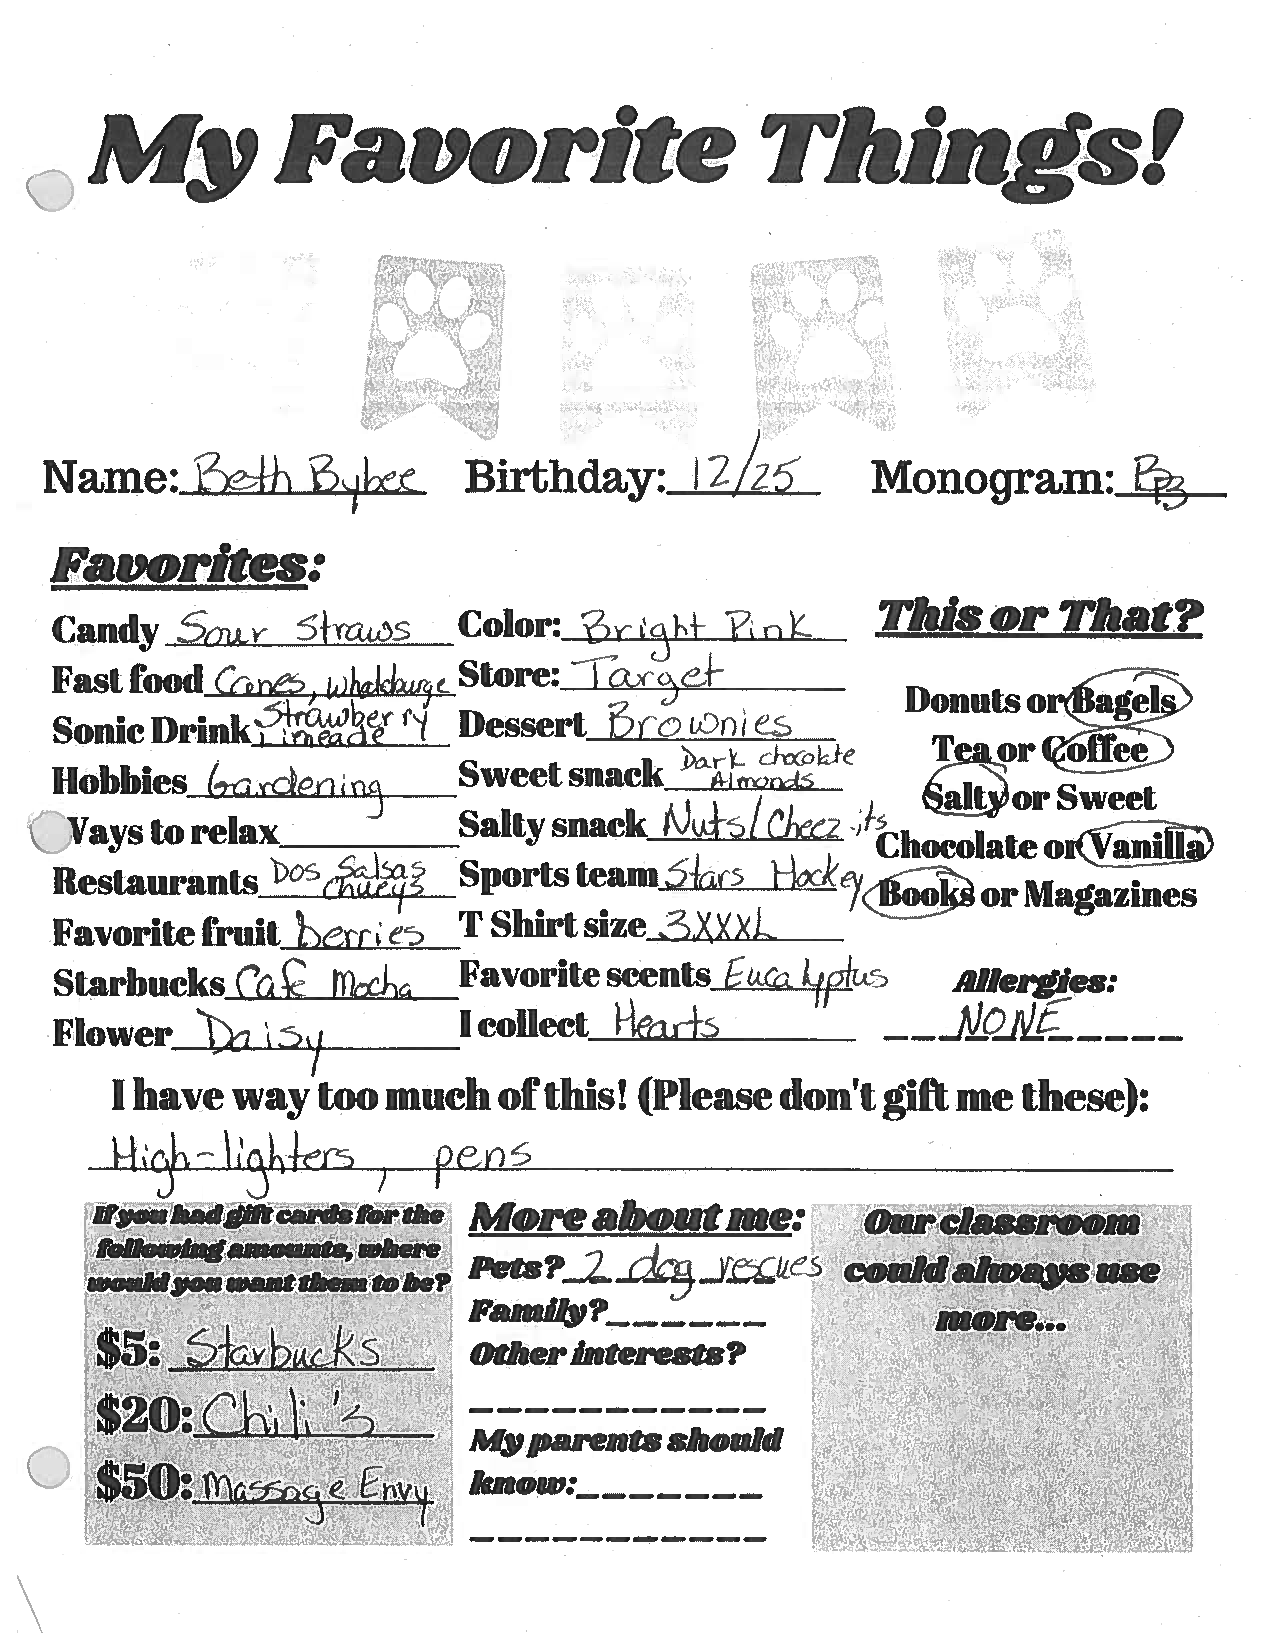 My Favorite Things!
Name: Beth Bybee Birthday: 12/25 Monogram: BPB
Favorites:
This or That?
Candy Sour Straws Color: Bright Pink
Fast food Canes, Whataburge Store: Target
Donuts or Bagels
Sonic Drink Strawberry Limeade Dessert Brownies
Tea or Coffee
Hobbies Gardening Sweet snack Dark chocolate Almonds
Salty or Sweet
Ways to relax Salty snack Nuts/Cheez-its
Chocolate or Vanilla
Restaurants Dos Salsas Chueys Sports team Stars Hockey
Books or Magazines
Favorite fruit berries T Shirt size 3XXXL
Starbucks Cafe Mocha Favorite scents Eucalyptus
Allergies:
Flower Daisy I collect Hearts
NONE
I have way too much of this! (Please don't gift me these):
High-lighters, pens
If you had gift cards for the
following amounts, where
would you want them to be?
$5: Starbucks
$20: Chili's
$50: Massage Envy
More about me:
Pets? 2 dog rescues
Family?
Other interests?
My parents should
know:
Our classroom
could always use
more...